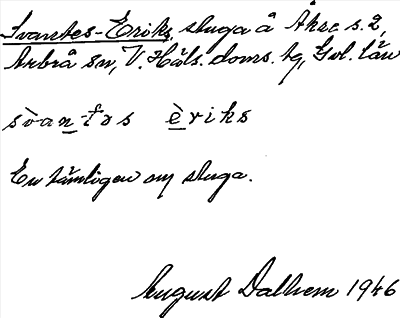 Svantes-Eriks, stuga å Åkre s. 2,
Arbrå sn, V. Häls. doms. tg, Gvl. län
svan-təs èriks
En tämligen ny stuga.
August Dalhem 1946